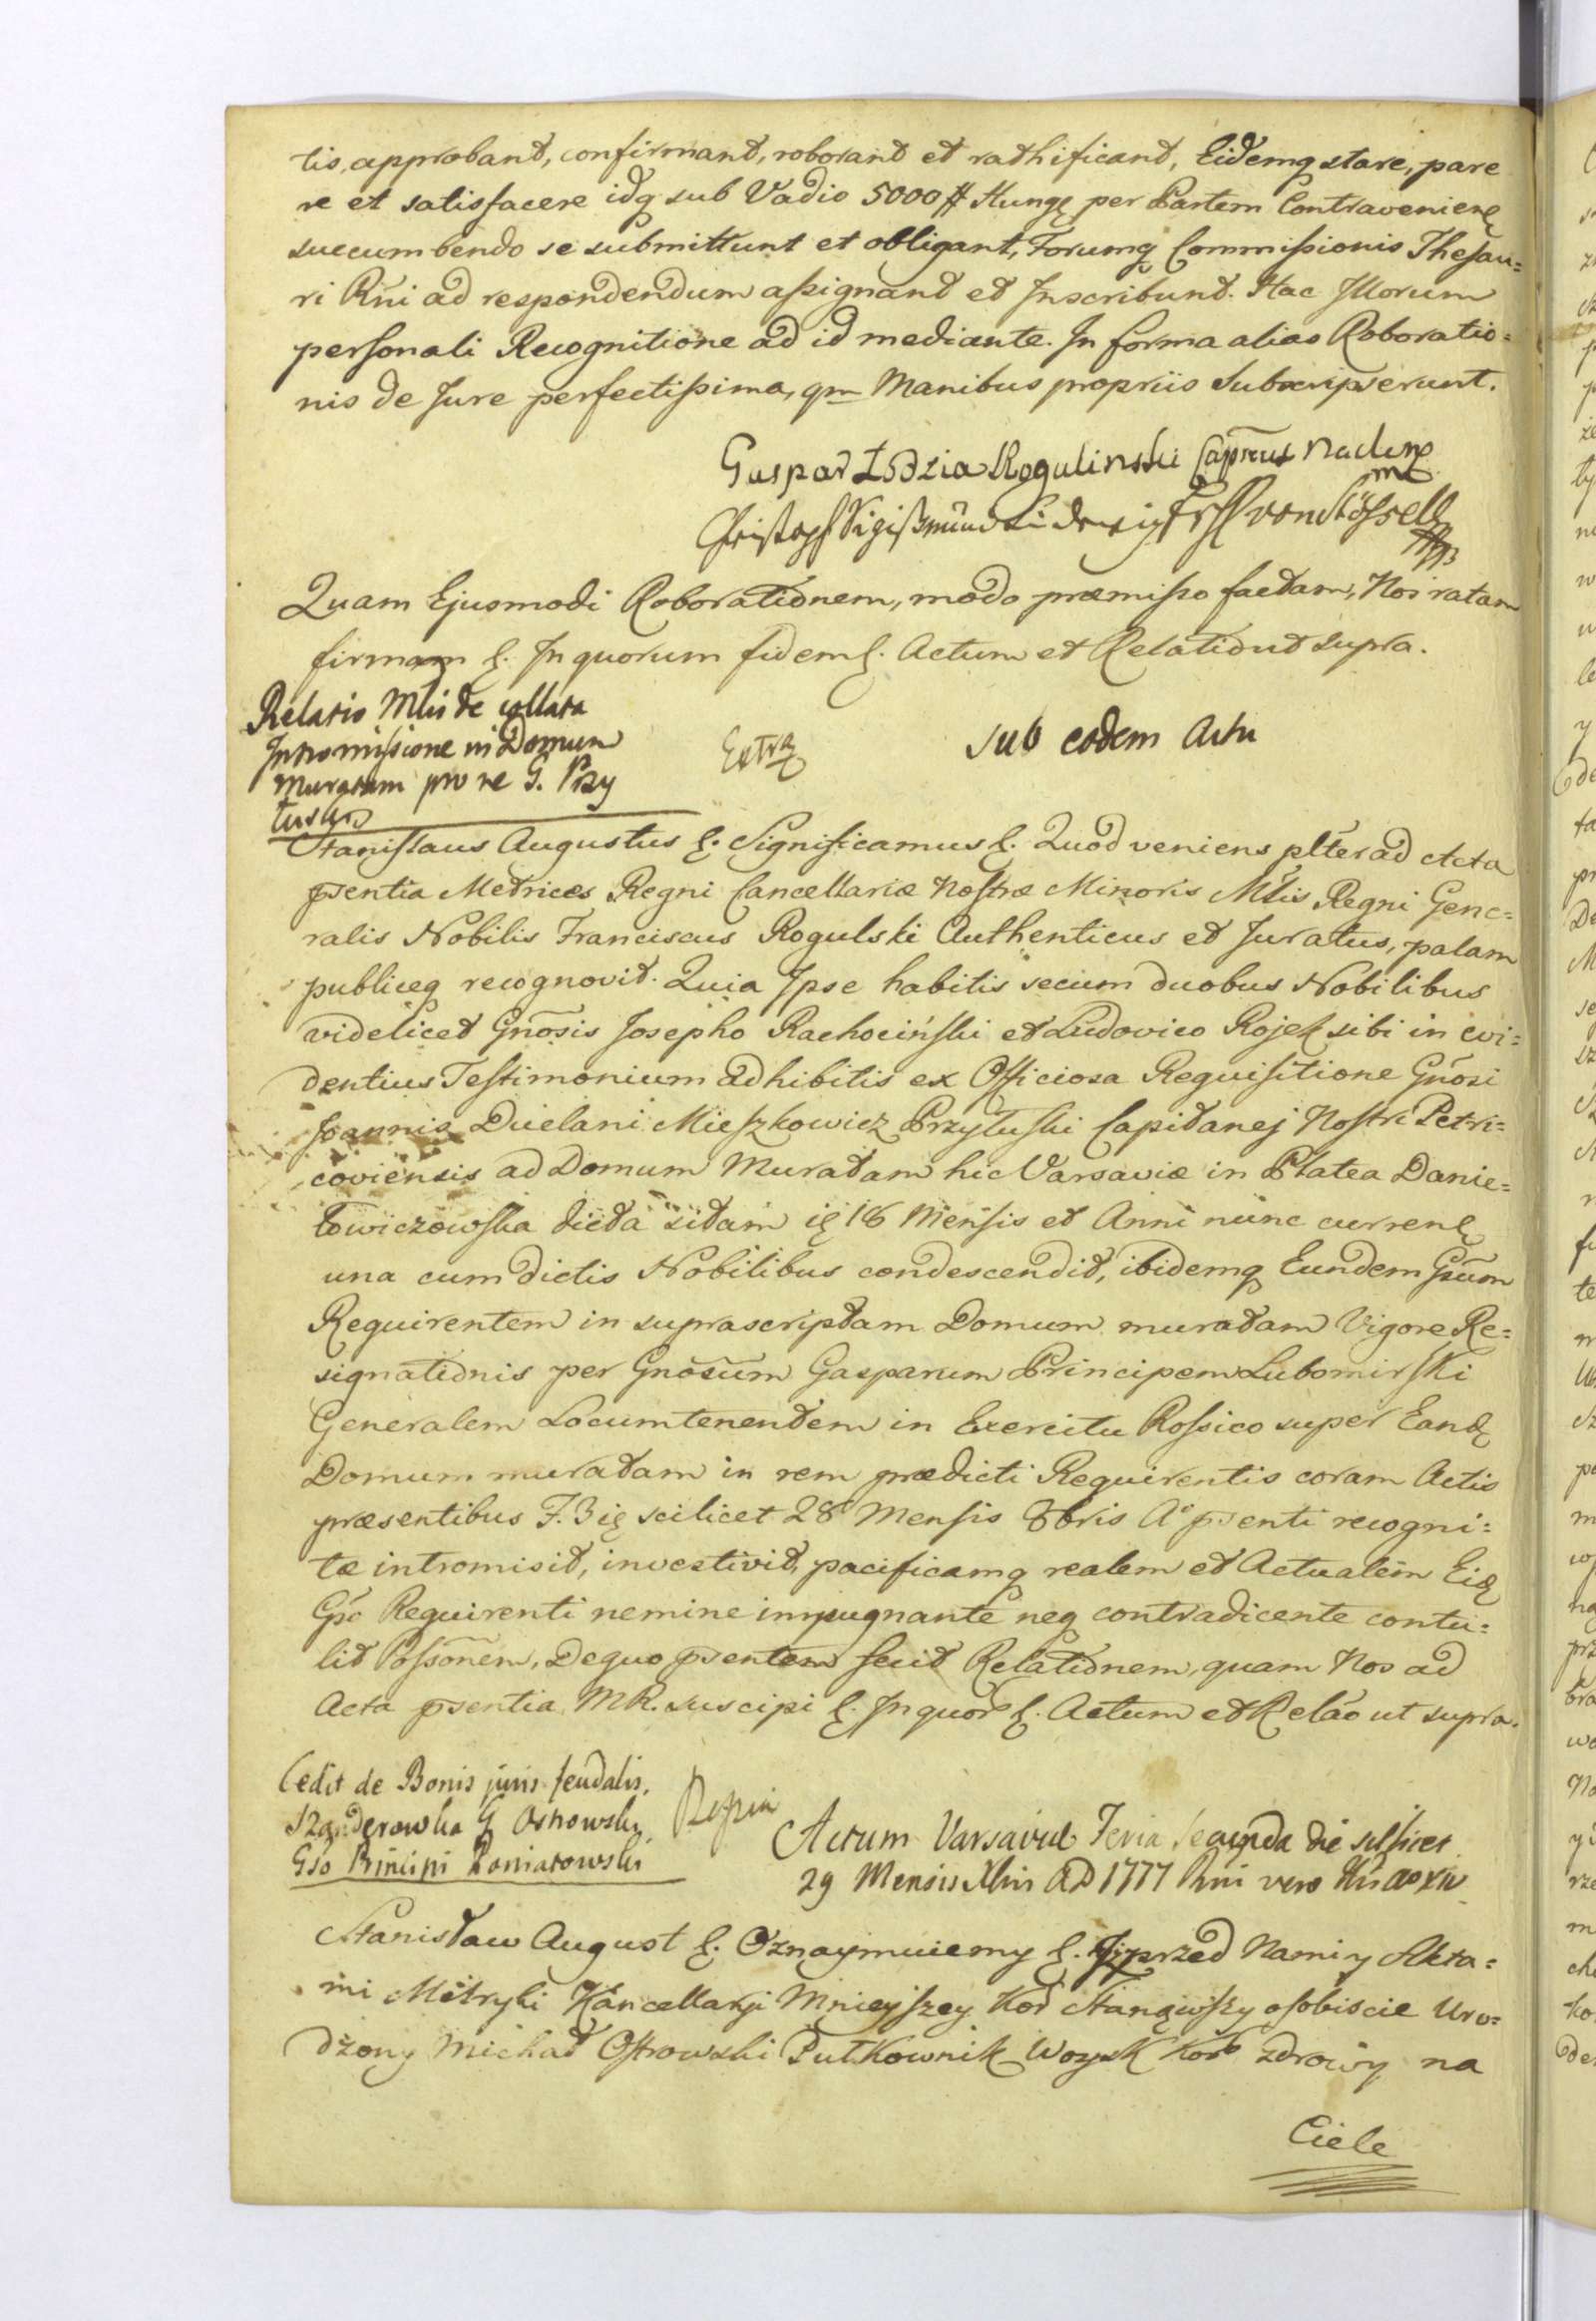 tis, approbant, confirmant, roborant et rathificant, Eidemq stare, pare
re et satisfacere idq sub Vadio 5000 # Hung per Partem Contravenien
succumbendo se submittunt et obligant, Forumq Commissionis Thesau=
ri Rñi ad respondendum assignant et Inscribunt. Hac Illorum
personali Recognitione ad id mediante. In forma alias Roboratio=
nis de Jure perfectissima, qm Manibus propriis Subscripserunt.
Gaspar Łodzia Rogulinski
Christoph Sigißmund von Stössell
Quam Ejusmodi Roborationem, modo præmisso factam, Nos ratam
firmam &. In quorum fidem &. Actum et Relatio ut supra.
Relatio Mlis de collata
Intromissione in Domum
Muratam pro re G. Przy
tuski
Extr
sub eodem Actu
Stanislaus Augustus &. Significamus &. Quod veniens plter ad Acta
psentia Metrices Regni Cancellariæ Nostræ Minoris Mlis Regni Gene=
ralis Nobilis Franciscus Rogulski Authenticus et Juratus, palam
publiceq recognovit. Quia Ipse habitis secum duobus Nobilibus
videlicet Gnosis Josepho Rachociński et Ludovico Rojek sibi in evi=
dentius Testimonium adhibitis ex Officiosa Requisitione Gñosi
Joannis Duclani Mieszkowicz Przyłuski Capitanej Nostri Petri=
coviensis ad Domum Muratam hic Varsaviæ in Platea Danie=
łowiczowska dicta sitam 18 Mensis et Anni nunc curren
una cum dictis Nobilibus condescendit, ibidemq Eundem Gsum
Requirentem in suprascriptam Domum muratam Vigore Re=
signationis per Gnosum Gasparum Principem Lubomirski
Generalem Locumtenentem in Exercitu Rossico super Eand
Domum muratam in rem prædicti Requirentis coram Actis
præsentibus F. 3 scilicet 28 Mensis 8bris A° psenti recogni=
tæ intromisit, investivit, pacificamq realem et Actualem Eid
Gso Requirenti nemine impugnante neq contradicente contu=
lit Possoñem, De quo psentem fecit Relationem, quam Nos ad
Acta psentia MR. suscipi &. In quor &. Actum et Relão ut supra.
Cedit de Bonis juris feudalis
Szanderowka G Ostrowski
Gso Principi Poniatowski
Actum Varsaviæ Feria Secunda die scilicet
29 Mensis Xbris AD 1777 Rñi vero Nri ao XIV
Stanisław August &. Oznaymuiemy &. Jż przed Nami y Akta=
mi Metryki Kancellaryi Mnieyszey Kor Stanąwszy osobiscie Uro=
dzony Michał Ostrowski Pułkownik Woysk Kor zdrowy na
Ciele